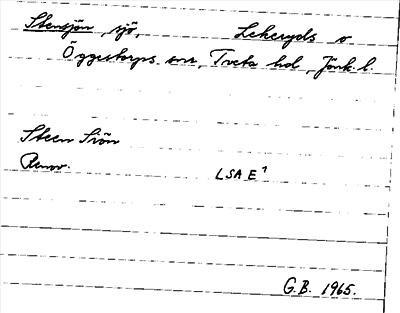 Stensjön, sjö, Lekeryds o
Öggestorps snr, Tveta hd, Jönk. l.
Steen Siön
Renov. LSA E1
G.B. 1965.